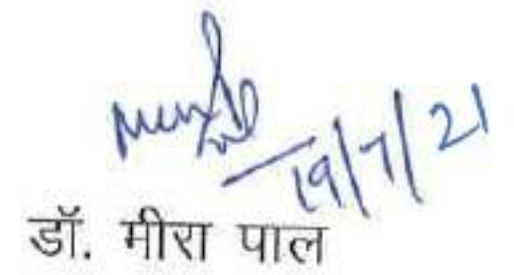 19/7/21
डॉ. मीरा पाल